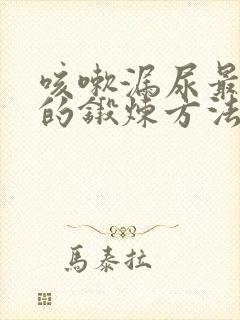 咳嗽漏尿最
的鍛煉方法
馬泰拉